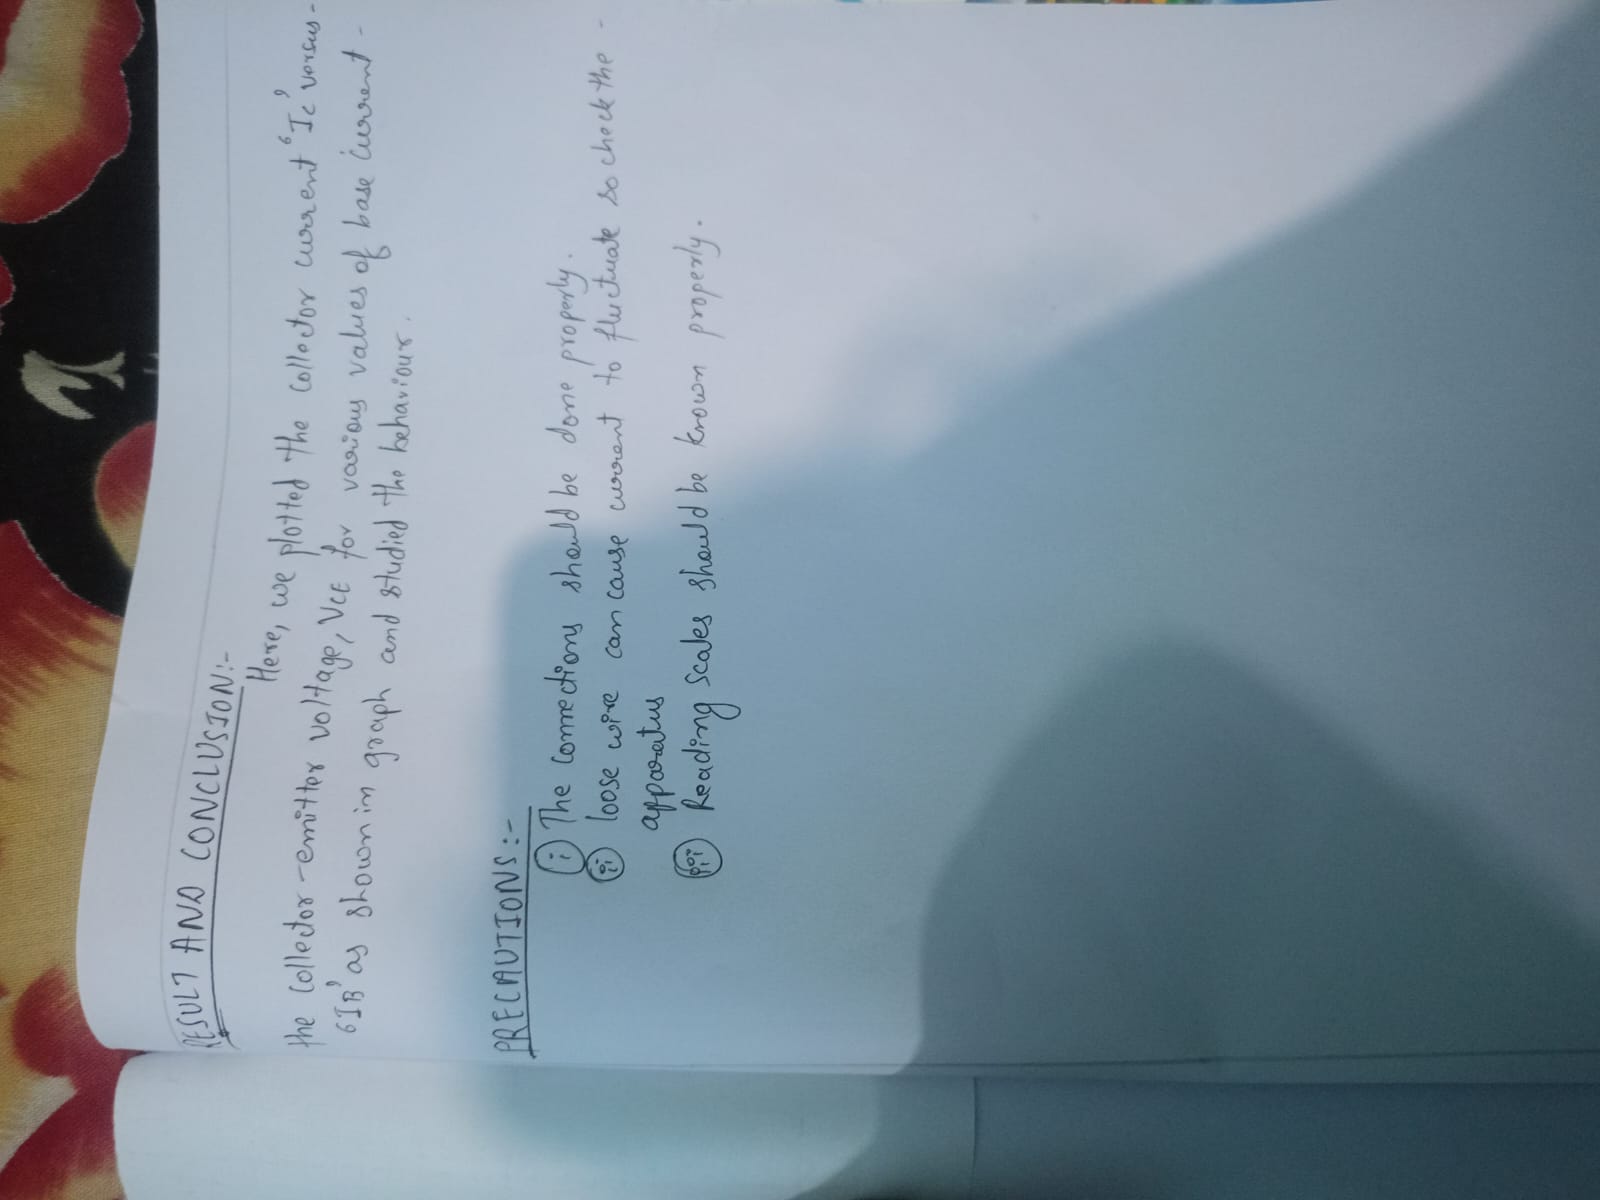 RESULT AND CONCLUSION:-
Here, we plotted the collector current 'Ic' versus-
the collector-emitter voltage, VCE for various values of base current-
'IB' as shown in graph and studied the behaviour.
PRECAUTIONS:-
(i) The connections should be done properly.
(ii) loose wire can cause current to fluctuate so check the-
apparatus
(iii) Reading scales should be known properly.